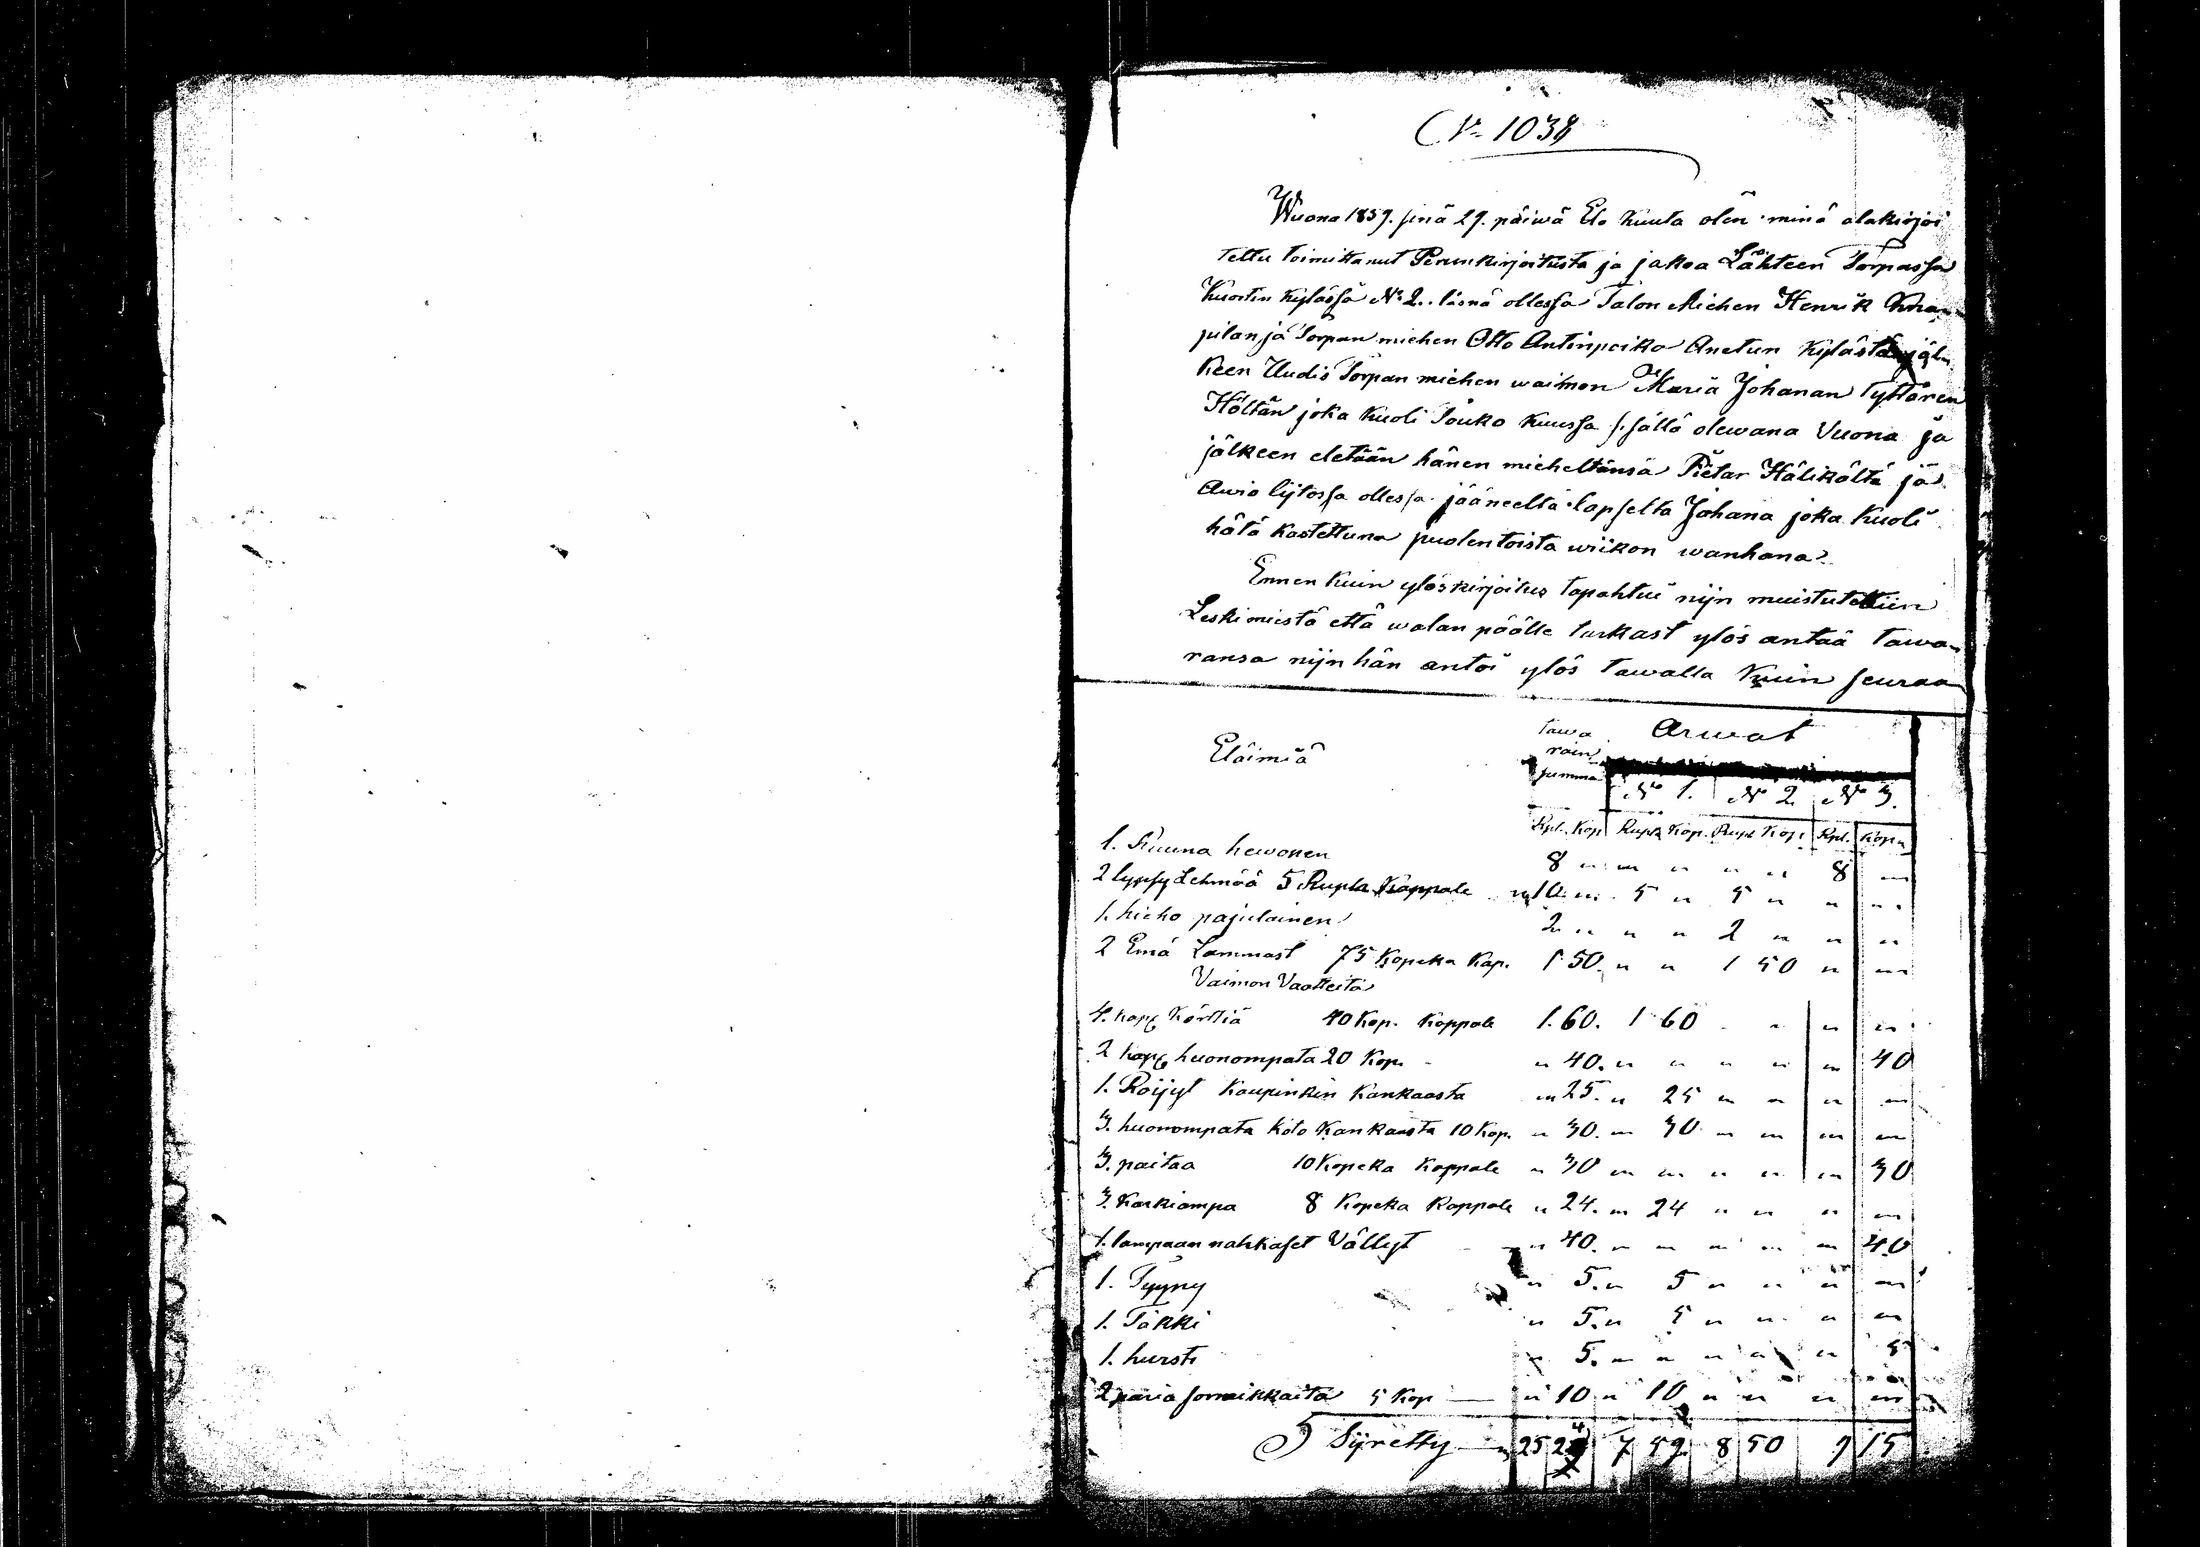 No 1038
Wuona 1859. sinä 29. päiwä Elo kuuta olen minä alakirjoi
tettu toimittanut Perunkirjoitusta ja jakoa Lähteen Torpassa
Kuortin kylässä No 2. läsnä ollessa Talon Miehen Henrik
pilan ja Torpan miehen Otto Antinpoika Anetun kylästä jäl
keen Uudis Torpan miehen waimon Maria Johanan Tyttären
Höltän joka kuoli Touko kuussa sisällä olewana Vuona ja
jälkeen eletään hänen mieheltänsä Pietar Hälikältä ja
Awio lijtossa ollessa jääneeltä lapselta Johana joka kuoli
hätä kastettuna puolentoista wiikon wanhana
Ennen kuin ylöskirjoitus tapahtui nijn muistutettiin
Leskimiestä että walan päälle tarkast ylös antaa tawa
ransa nijn hän antoi ylös tawalla kuin seuraa
Eläimiä tawa rain summa Arwat
No 1. No 2 No 3.
Rpl. Kop Rupla Kop. Rupl Kop. Rpl. Kop
1. Ruuna hewonen 8 " " " " " 8 "
2 lypsy Lehmää 5 Rupla Kappale " 10 " 5 " 5 " " "
1. hieho pajulainen 2 " " " 2 " " "
2 Emä Lammast 75 Kopeka Kap. 1 50. " " 1 50 " "
Vaimon Vaatteita
4. kap: Körttiä 40 Kop. Kappale 1. 60. 1 60 " " "
2 kap: huonompata 20 Kop. " 40. " " " " " 40
1. Roijyt Kaupinkin Kankaasta " 25. " 25 " " " "
3. huonompata koto Kankaasta 10 Kop. " 30. " 30 " " " "
3. paitaa 10 Kopeka Kappale " 30 " " " " " 30
3. Karkiampa 8 Kopeka Kappale " 24. " 24 " " " "
1. lampaan nahkaset Vällyt " 40. " " " " " 40
1. Tyyny " 5. " 5 " " " "
1. Täkki " 5. " 5 " " " "
1. hursti " 5. " " " " " 5
2 paria sormikkaita 5 Kop " 10 " 10 " " " "
Sijretty 25 24 7 59 8 50 9 15